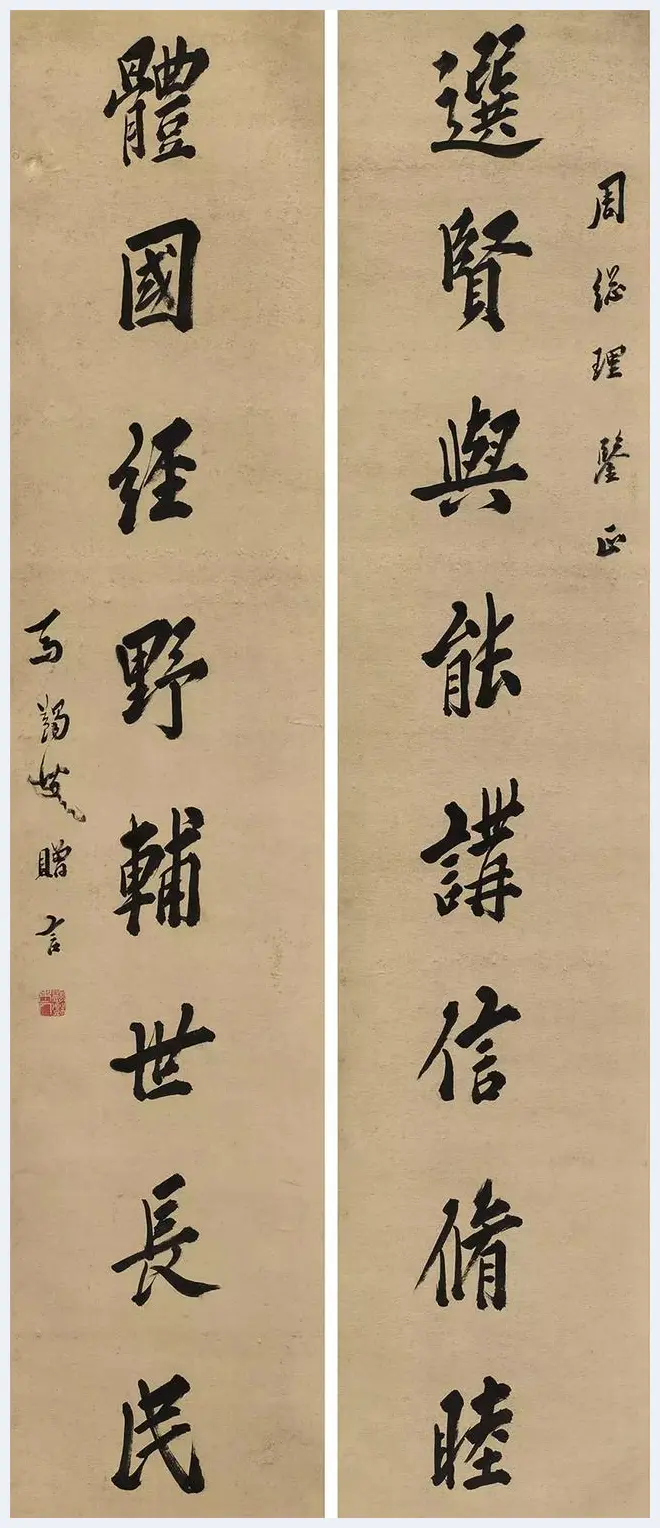 周総理鑒正
選賢與能講信脩睦
體國経野輔世長民
馬蠲叟贈言